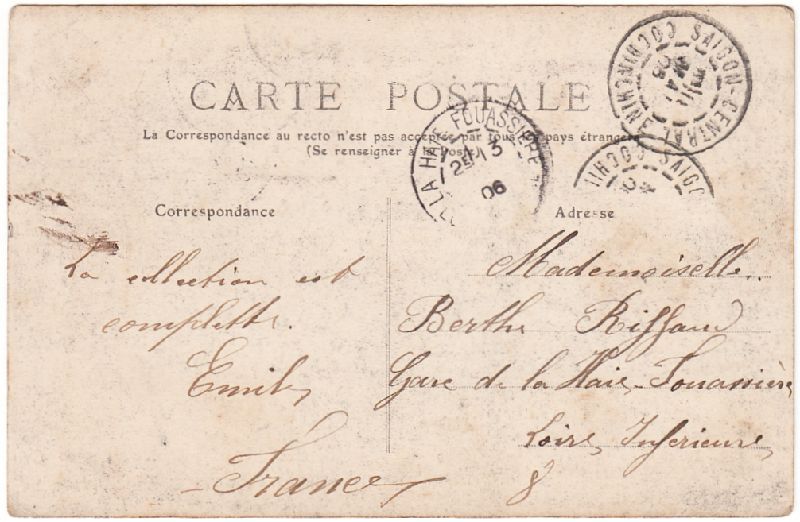 CARTE POSTALE
La Correspondance au recto n'est pas acceptée par tous les pays étrangers
(Se renseigner à la Poste)
SAIGON-CENTRAL
COCHINCHINE
LA HAIE FOUASSIERE
2E 13
06
SAIGO
COCHI
Correspondance
Adresse
La collection est
complette.
Emile
France
Mademoiselle
Berthe Riffaud
Gare de la Haie-Fouassière
Loire Inferieure
8